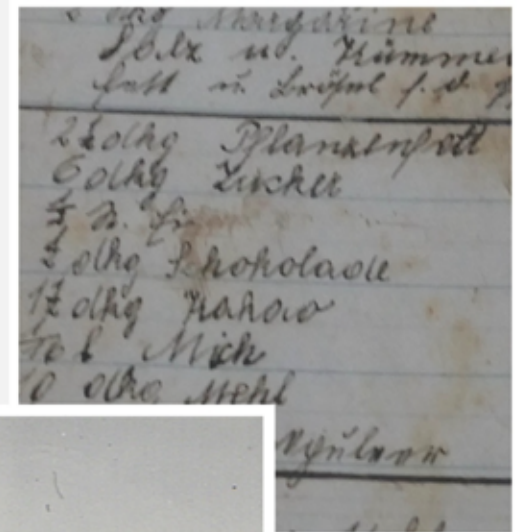 dkg Margarine
Salz u. Kümmel
fett u. Brösel f. d.
2½ dkg Pflanzenfett
6 dkg Zucker
½ St. Ei
dkg Schokolade
1½ dkg Kakao
1/10 l Mich
10 dkg Mehl
pulver